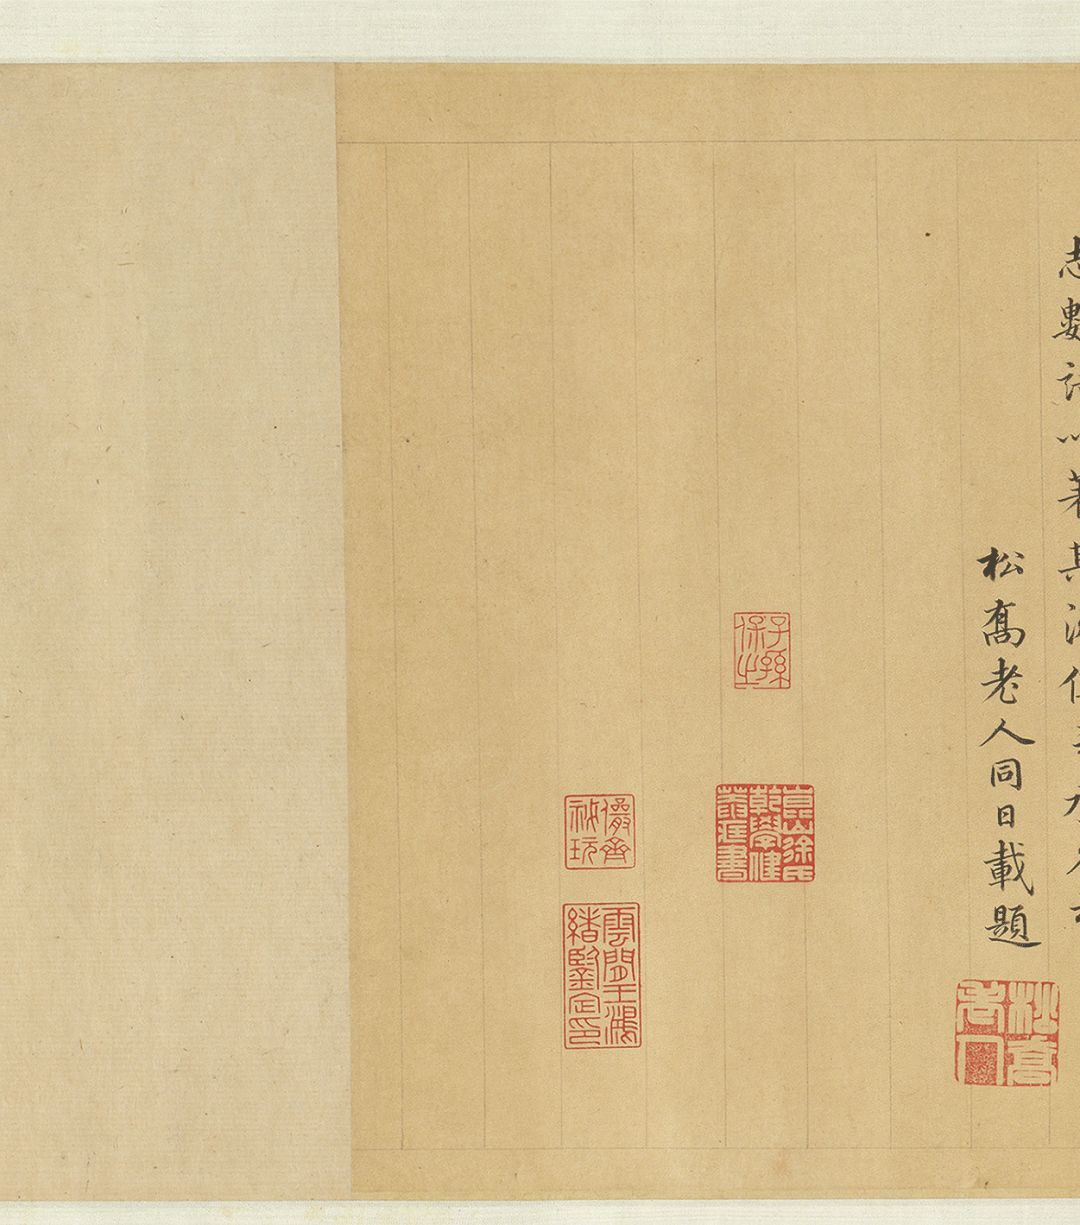 志數語以著其
松髙老人同日載題
松髙
老人
子孫
保之
崑山徐氏
乾學健
菴藏書
儼齋
祕玩
雲間王鴻
緒鑒定印